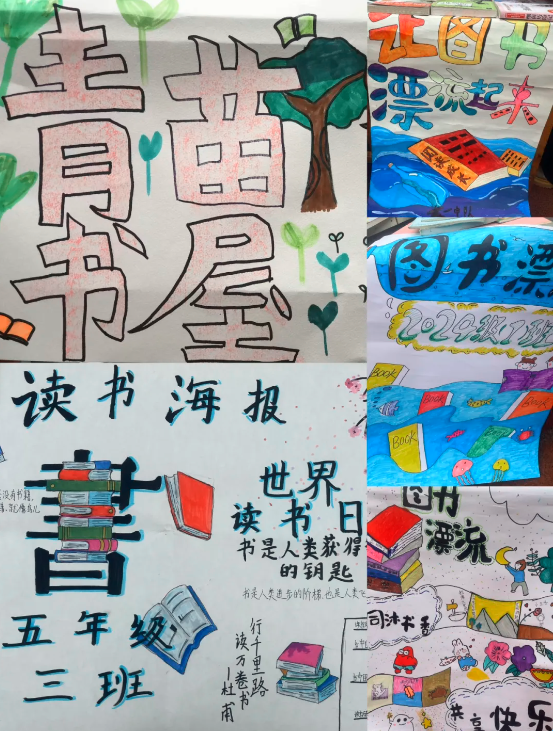 青苗
书屋
让图书
漂流起来
图书漂
BOOK
BOOK
BOOK
BOOK
读书海报
没有书籍
書
世界
读书日
书是人类获得
的钥匙
书是人类进步的阶梯,也是人类
五年级
三班
行千里路
读万卷书
—杜甫
图书
漂流
司沐书香
共享快乐